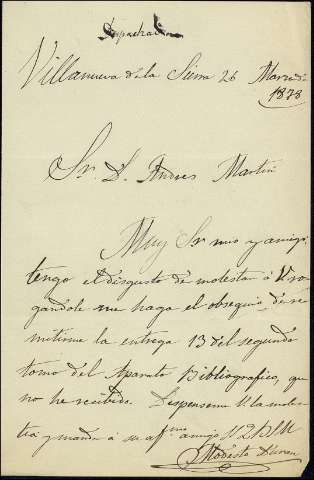 Villanueva de la Sierra 26 Marzo de
1878
Sr. D. Andres Martin
Muy Sr mio y amigo,
tengo el disgusto de molestar á V ro
gandole me haga el obsequio de re
mitirme la entrega 13 del segundo
tomo del Aparato Bibliografico, que
no he recibido. Dispenseme V. la moles
tia y mande á su af.mo amigo
Modesto Duran